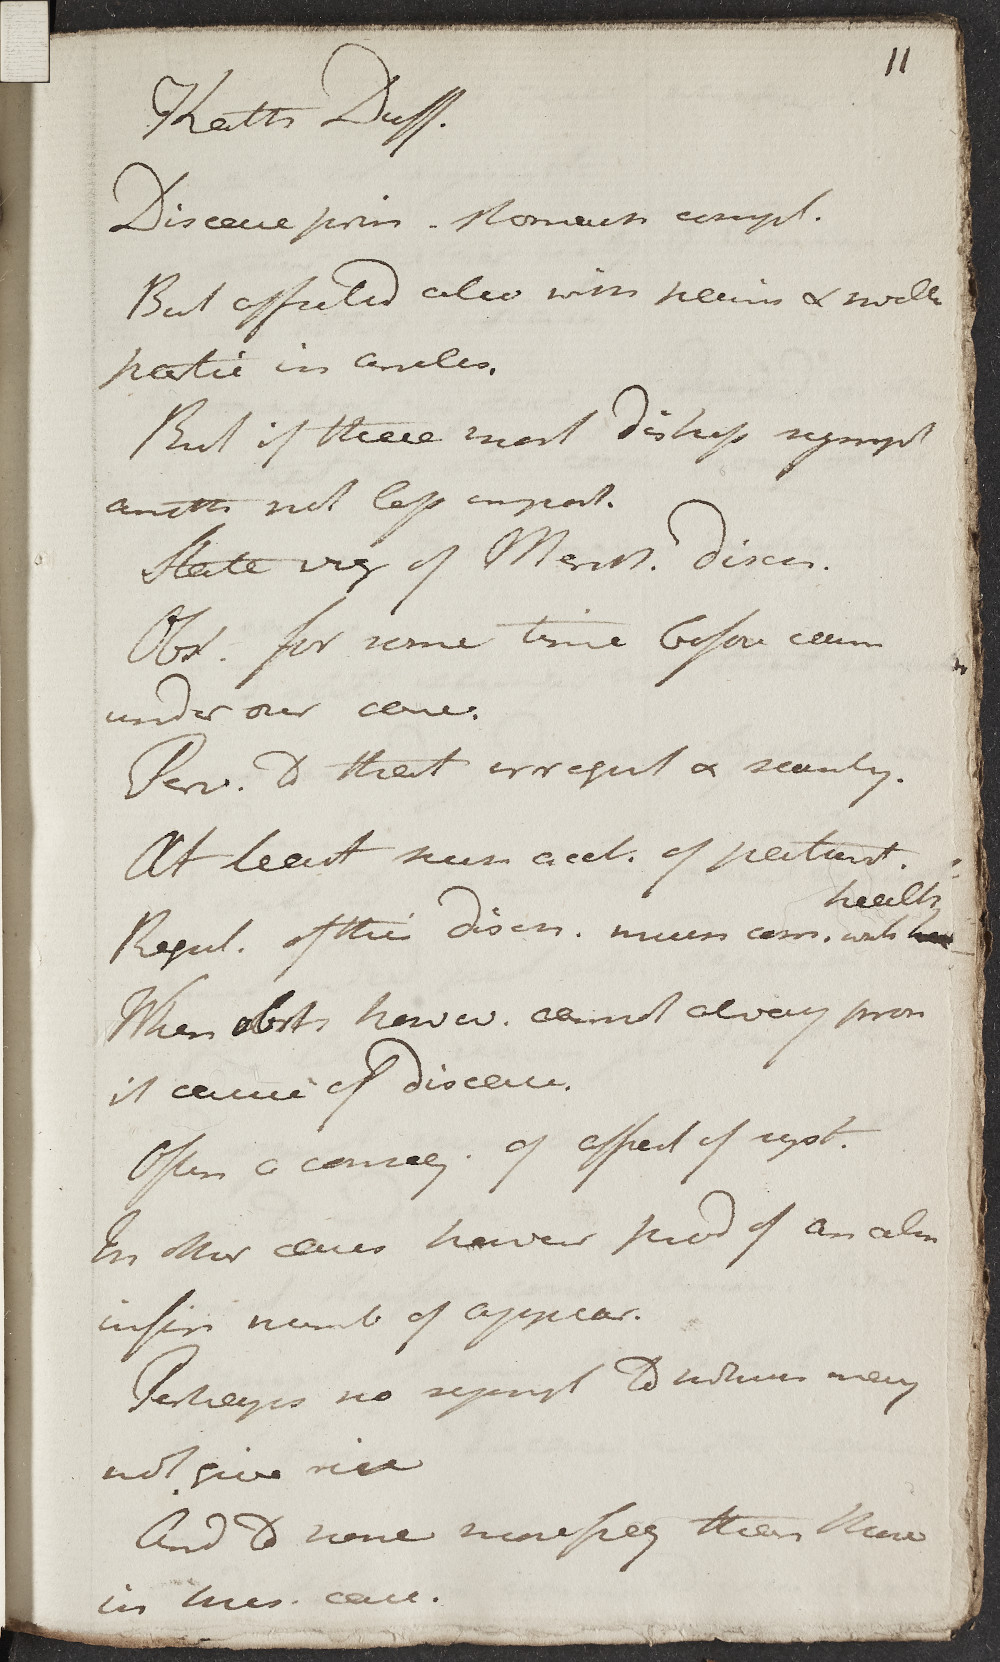 11
Kath Duff.
Disease prin. Stomach compl.
But affected also with pains & swell
partic in ancles.
But if these most distress sympt
anoth not less import.
State viz of Menst. disch.
Obst. for some time before came
under our care.
Prev. to that irregul & scanty.
At least such acct. of patient.
health
Regul. of this disch. much con. with
When obstr however. cannot always pron
it cause of disease.
Often a conseq. of affect of syst.
In other cases however prod of an alm
infin numb of appear.
Perhaps no sympt to which may
not give rise
And to none more freq than those
in this case.